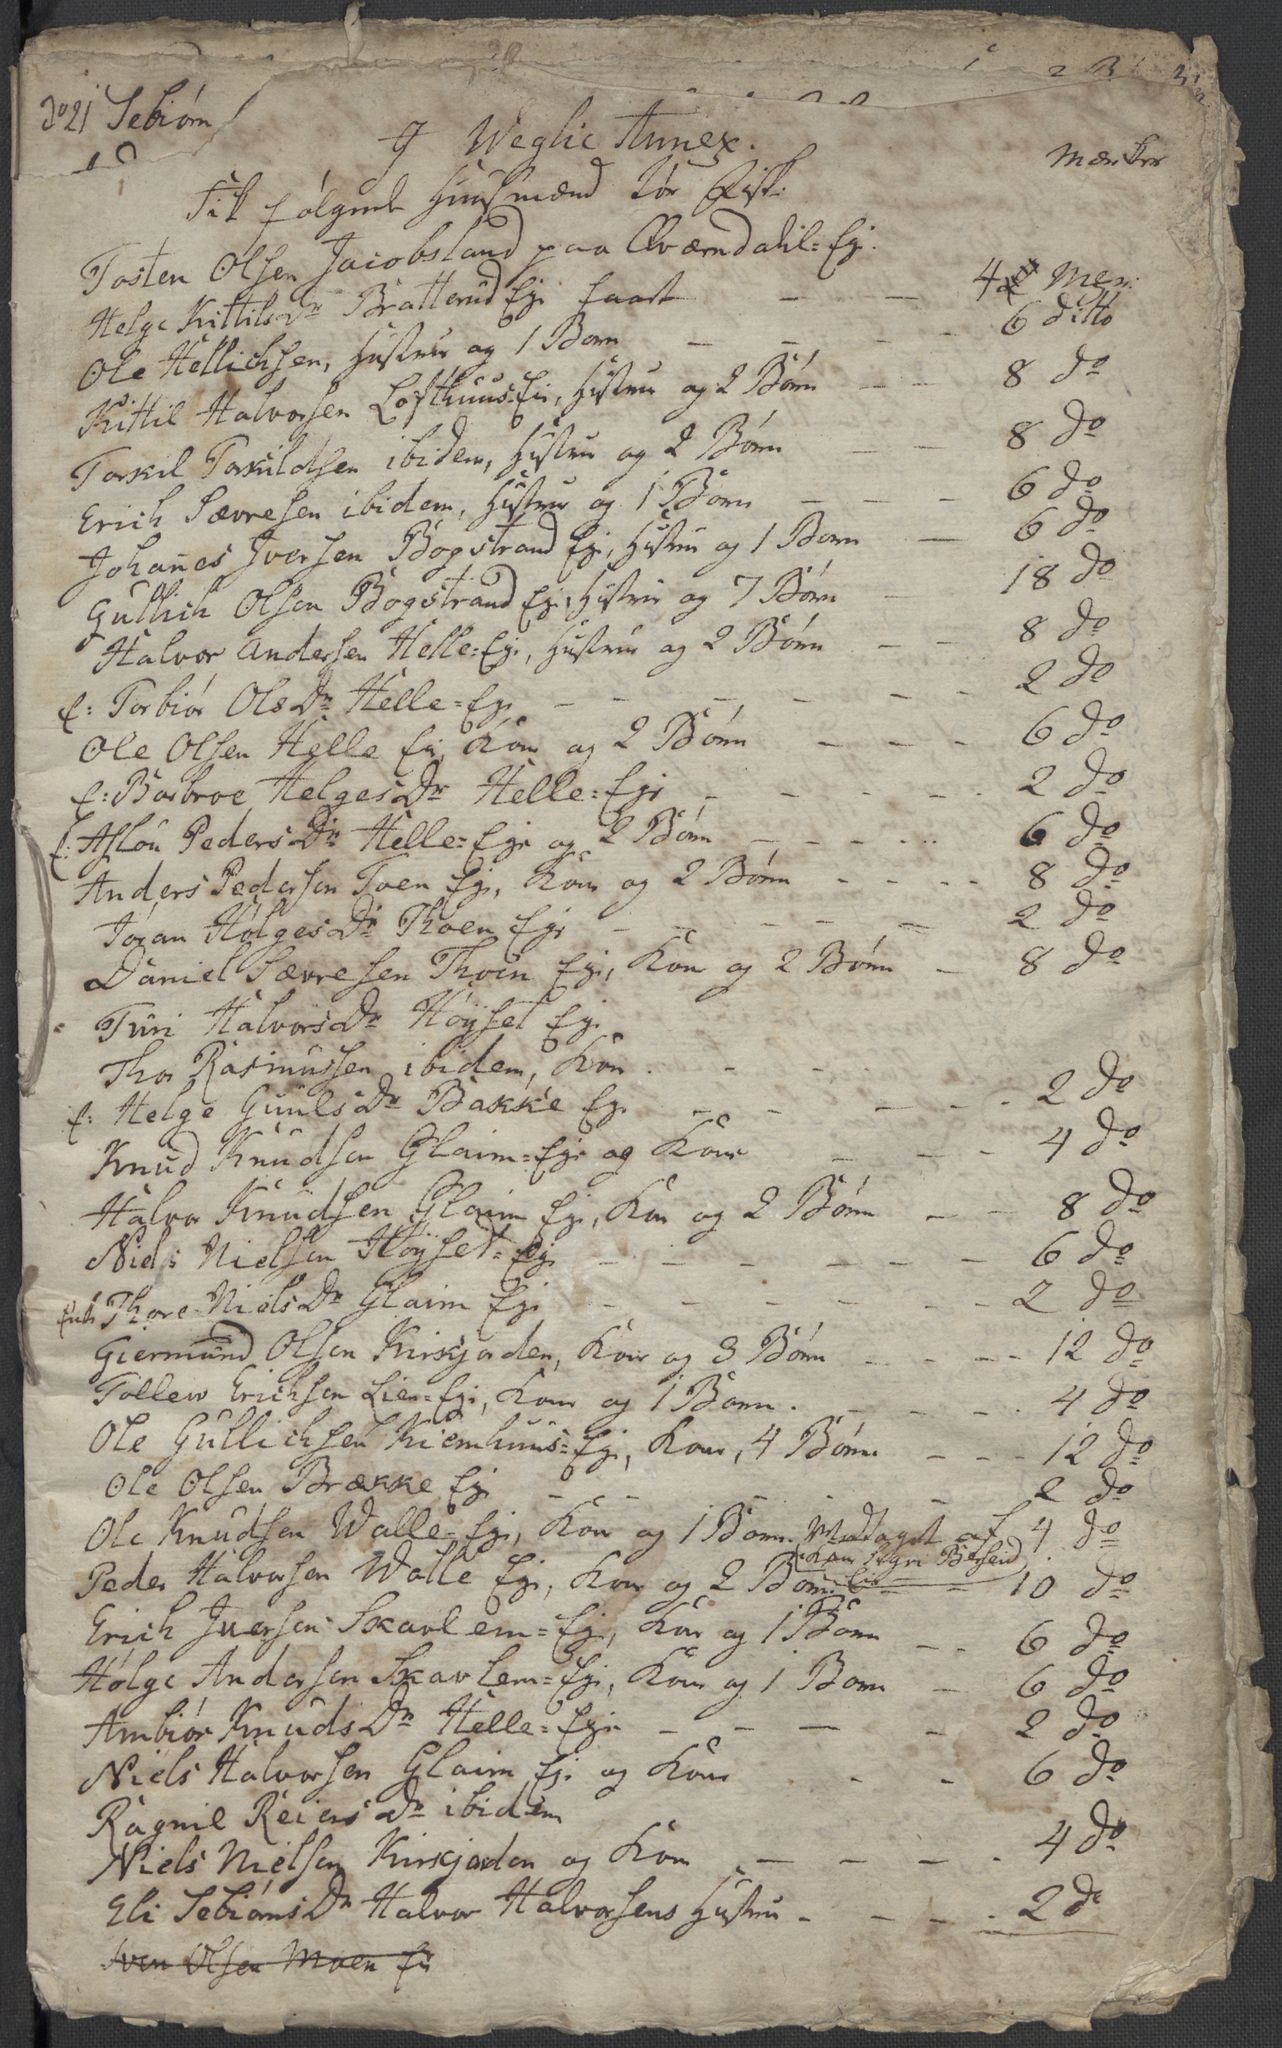 do 21 Sebiörn
J Weglie Annex.
Mærker
Fik følgende Huusmænd tör Fisk:
Tosten Olsen Jacobsland paa Qværndahl=Ej.
Helge KittilsDr Bratterud Ej. faaet — — 4 Mer:
Ole Hellichsen, Hustrue og 1 Barn — — — 6 ditto
Kittil Halvorsen Lofthuus=Ei, Hustrue og 2 Börn — — 8 do
Torkil Torkildsen ibidem, Hustrue og 2 Börn — — 8 do
Erich Sævresen ibidem, Hustrue og 1 Barn — — — 6 do
Johanes Iversen Bogstrand Ej., Hustrue og 1 Barn — 6 do
Gullich Olsen Bogstrand Ej., Hustrue og 7 Börn — 18 do
Halvor Andersen Helle=Ej., Hustrue og 2 Börn — — 8 do
E: Torbiör OlsDr Helle=Ej. — — — — — 2 do
Ole Olsen Helle Ei, Kone og 2 Börn — — — 6 do
E: Barbroe HelgesDr Helle=Ej. — — — — 2 do
E: Aslou PedersDr Helle=Ej. og 2 Börn — — — 6 do
Anders Pedersen Toen Ej., Kone og 2 Börn — — — 8 do
Jöran HölgesDr Thoen Ej. — — — — — 2 do
Daniel Sævresen Thoen Ej., Kone og 2 Börn — 8 do
Turi HalvorsDr Höyset Ej.
Thor Rasmussen ibidem, Kone. — —
E: Helge GuulsDr Bakke Ej. — — — — — 2 do
Knud Knudsen Glaim=Ej. og Kone — — — 4 do
Halvor Knudsen Glaim Ej., Kone og 2 Börn — — 8 do
Niels Nielsen Höyset=Ej. — — — — — 6 do
Enke Thore NielsDr Glaim Ej. — — — — — 2 do
Giermund Olsen Kirkjorden, Kone og 3 Börn — — — 12 do
Tollew Erichsen Lien=Ej., Kone og 1 Barn. — — — 4 do
Ole Gullichsen Kiemhuus=Ej., Kone, 4 Börn — — — 12 do
Ole Olsen Brække Ej. — — — — — 2 do
Ole Knudsen Walle=Ej., Kone og 1 Barn. Modtaget af 4 do
Sigri Berseid
Peder Halvorsen Walle Ej., Kone og 2 Börn. — 10 do
Erich Iversen Skavlem=Ej., Kone og 1 Barn — — 6 do
Hölge Andersen Skavlem=Ej., Kone og 1 Barn — 6 do
Ambiör KnudsDr Helle=Ej. — — — — 2 do
Niels Halvorsen Glaim Ej. og Kone — — 6 do
Ragnil ReiersDr ibidem
Niels Nielsen Kirkjorden og Kone — — — — 4 do
Eli SebiörnsDr Halvor Halvorsens Hustrue — — — 2 do
Sven Olsen Moen Ei